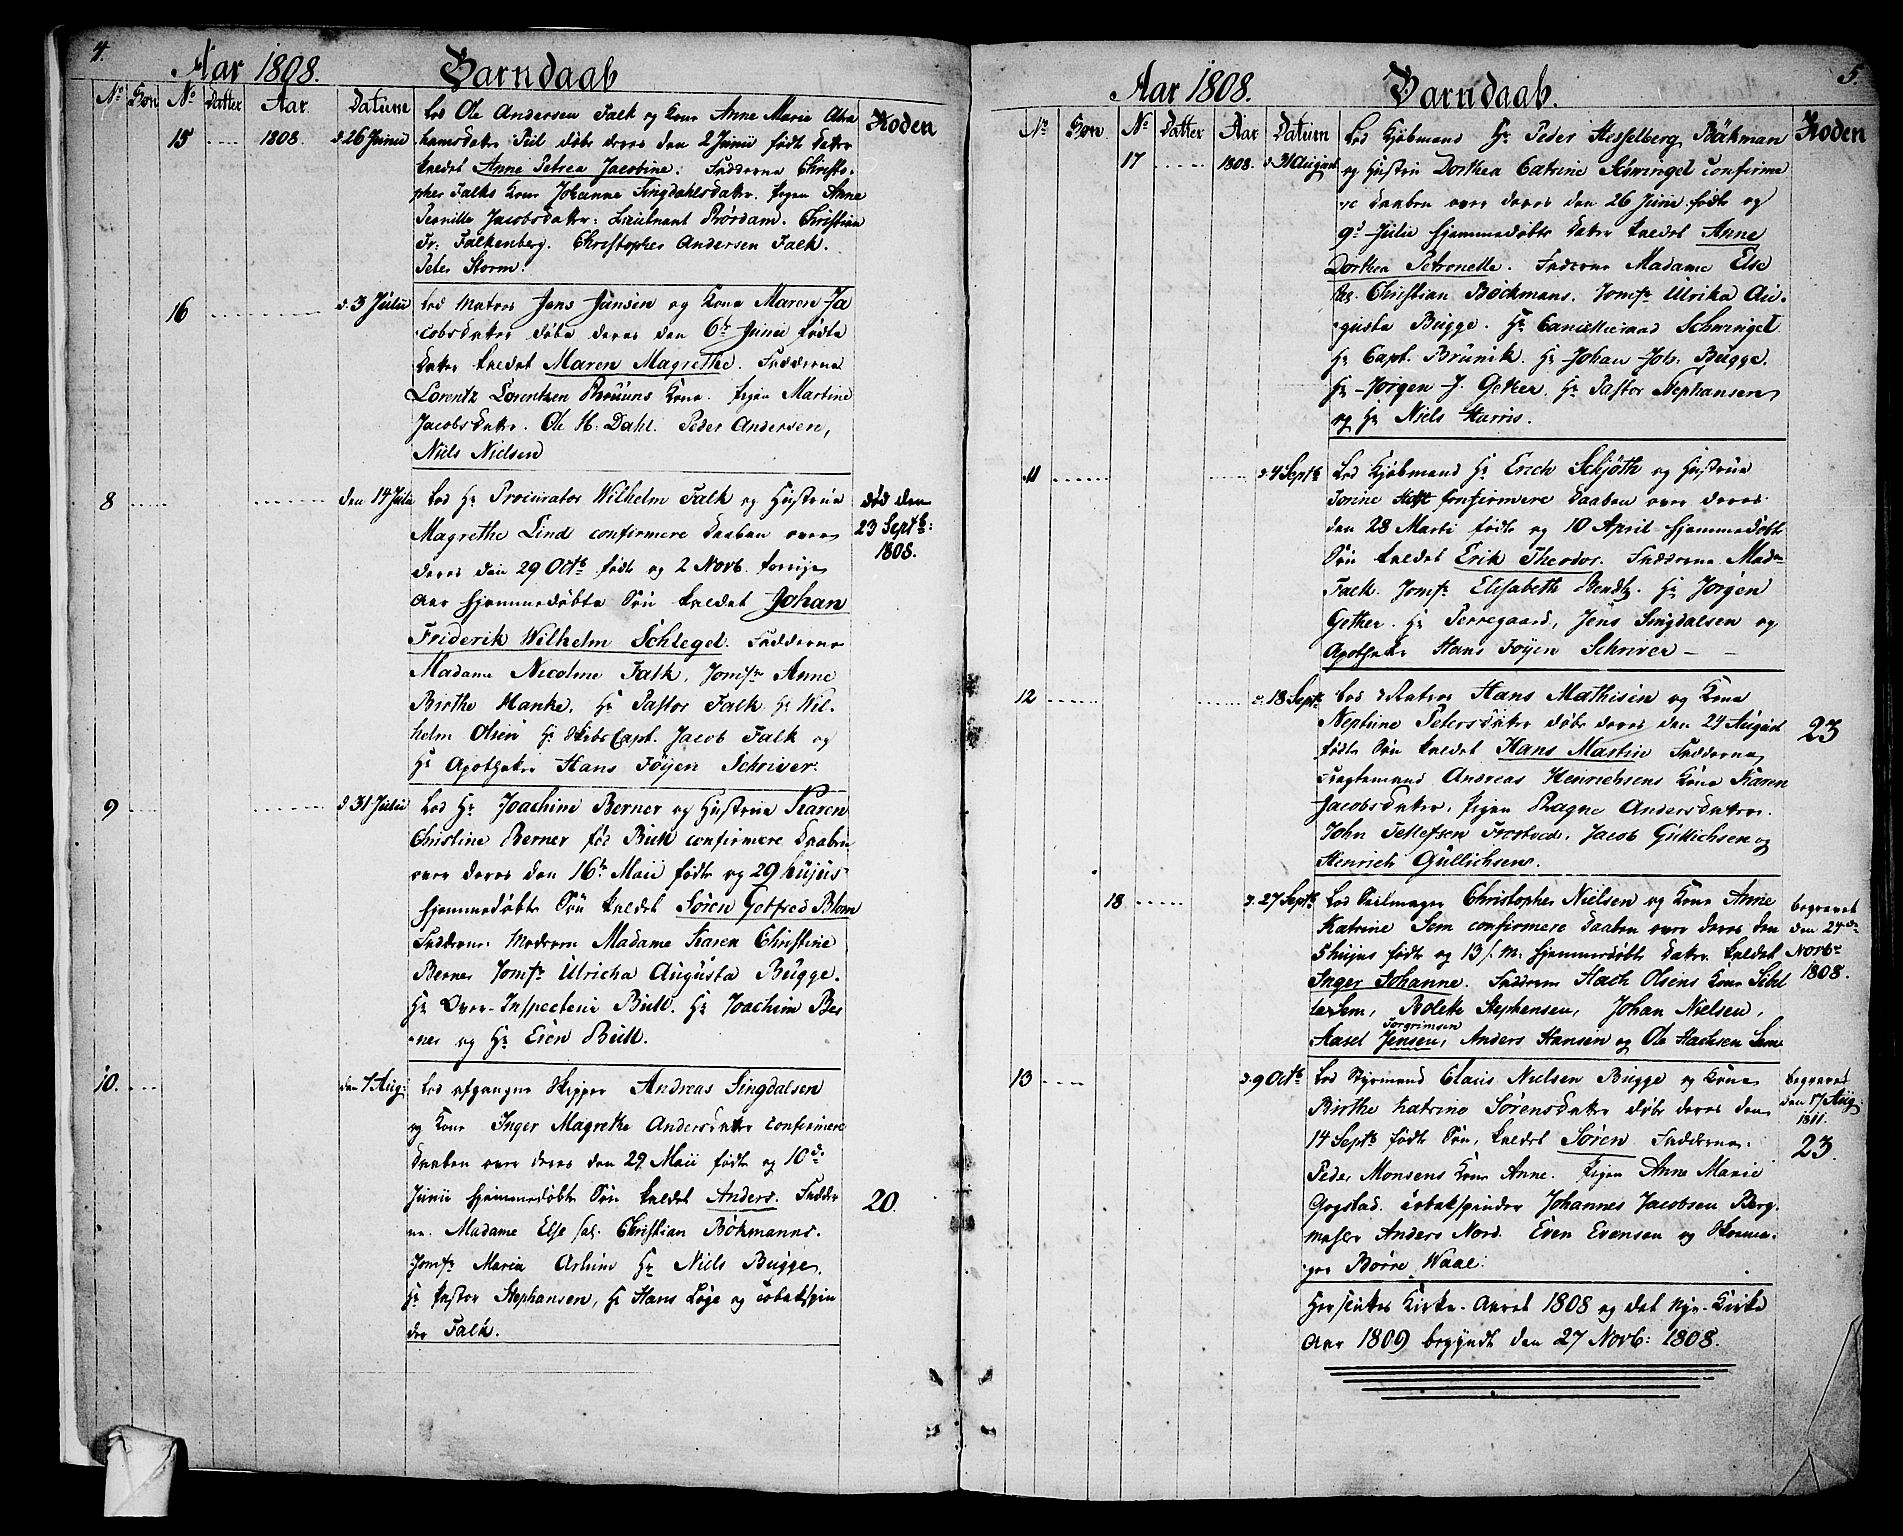 4.
Aar 1808. Barndaab
No Søn No Datter Aar Datum Noden
15 1808 d 26 Junii
Lod Ole Andersen Falk og Kone Anne Marie Abra
hamsdatter Piil døbe deres den 2 Junii født Datter
kaldet Anne Petrea Jacobine. Fadderne Christo-
pher Falks Kone Johanne Singdahlsdatter. Pigen Anne
Pernille Jacobsdatter: Lieutnant Rørdam. Christian
Fr: Falkenberg. Christopher Andersen Falk.
Peter Storm.
16 d. 3 Julii
Lod Matros Jens Jansen og Kone Maren Ja
cobsdatter døbe deres den 6te Junii fødte
Datter kaldet Maren Magrethe. Fadderne
Lorentz Lorentzen Bruuns Kone. Pigen Martine
Jacobsdatter. Ole H: Dahl. Peder Andersen,
Niels Nielsen
8 den 14 Julii
Lod Hr Procurator Wilhelm Falk og Hustrue
Magrethe Lind confirmere Daaben over
deres den 29 Octb født og 2 Novb. forrige
Aar hjemmedøbte Søn kaldet Johan
Friderik Wilhelm Schlegel. Fadderne
Madame Nicoline Falk, Jomfr Anne
Birthe Hanke, Hr Pastor Falk Hr Wil-
helm Olsen Hr Skibs Capt. Jacob Falk og
Hr Apotheker Hans Føyen Schriver.
død den
23 Septb:
1808.
9 d 31 Julii
Lod Hr Joachim Berner og Hustrue Karen
Christine Berner fød Bull confirmere Daaben
over deres den 16de Maii født og 29 hujus
hjemmedøbte Søn kaldet Søren Gotfred Blom
Fadderne: Moderen Madame Karen Christine
Berner Jomfr Ulricha Augusta Bugge.
Hr Over-Inspecteur Bull. Hr Joachim Ber
ner og Hr Eien Bull.
10. den 7 Aug:
Lod afgangne Skipper Andreas Singdalsen
og Kone Inger Magrethe Andersdatter confirmere
Daaben over deres den 29 Maii født og 10de
Junii hjemmedøbte Søn kaldet Anders. Fadder
ne. Madame Else sal. Christian Bøkmanns.
Jomfr Maria Hr Niels Bugge.
Hr Pastor Stephansen, Hr Hans Løge og Tobakspin
der Falk.
20.
5.
Aar 1808. Barndaab.
No Søn. No Datter Aar Datum Noden
17 1808. d. 31 August
Lod Kjøbmand Hr Peder Hesselberg Bøkman
og Hustru Dorthea Catrine Schwingel confirme
re Daaben over deres den 26 Junii født og
9d Julii hjemmedøbte Datter kaldet Anne
Dorthea Petronelle. Fadderne Madame Else
Sal. Christian Bøckmans. Jomfr Ulrika Au-
gusta Bugge. Hr Cancelliraad Schwingel
Hr Capt. Brunik. Hr Johan Joh: Bugge.
Hr Jørgen J. Gether. Hr Pastor Stephansen
og Hr Niels Harris.
11 d. 4 Septb
Lod Kjøbmand Hr Erich Schjøth og Hustrue
Jonine confirmere Daaben over deres
den 28 Marti født og 10 April hjemmedøbte
Søn kaldet Erik Theodor. Fadderne Mad.
Falk. Jomfr Elisabeth Bendtz. Hr Jørgen
Gether. Hr Perregaard, Jens Singdalsen og
Apotheker Hans Føyen Schriver
12 d. 18 Septb
Lod Matros Hans Mathisen og Kone
Neptune Petersdatter døbe deres den 24 August
fødte Søn kaldet Hans Martin Fadderne
Fragtemand Andreas Henrichsens Kone Karen
Jacobsdatter, Pigen Ragne Andersdatter.
John Tellefsen Frostved. Jacob Gullichsen og
Henrich Gullichsen.
23
18 d. 27 Septb
Lod Seilmager Christopher Nielsen og Kone Anne
Katrine Sem confirmere Daaben over deres den
5 hujus født og 13 s. M: hjemmedøbte Datter kaldet
Inger Johanne. Fadderne Hach Olsens Kone Sibil
la Sem, Bolette Stephensen, Johan Nielsen,
Torgrimsen
Axsel Jensen, Anders Hansen og Ole Hachsen Sem
begravet
den 24de
Novbr
1808.
13 d. 9 Octb
Lod Styrmand Claus Nielsen Bugge og Kone
Birthe Katrine Sørensdatter døbe deres den
14 Septb født Søn, kaldet Søren Fadderne.
Peder Monsens Kone Anne. Pigen Anne Marie
Gogstad. Tobakspinder Johannes Jacobsen Berg.
Matros Anders Nord. Even Evensen og Skoma-
ger Børre Waale:
begravet
den 17 Aug
1811.
23.
Her slutter Kirke-Aaret 1808 og det Nye-Kirke
Aar 1809 begyndt den 27 Novb: 1808.